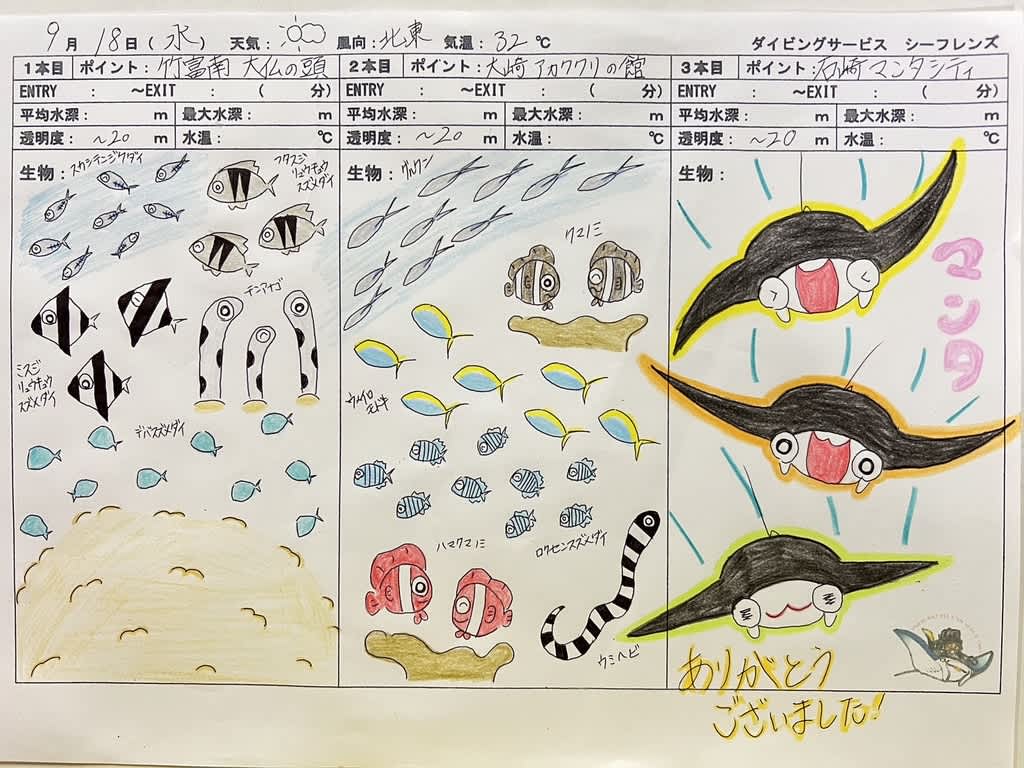 9月 18日(水) 天気: 風向:北東 気温:32℃
ダイビングサービス シーフレンズ
1本目 ポイント:竹富南 大仏の頭
ENTRY : ~EXIT : ( 分)
平均水深: m 最大水深: m
透明度:~20 m 水温: ℃
生物:
スカシテンジクダイ
フタスジ
リュウキュウ
スズメダイ
チンアナゴ
ミスジ
リュウキュウ
スズメダイ
デバスズメダイ
2本目 ポイント:大崎 アカククリの館
ENTRY : ~EXIT : ( 分)
平均水深: m 最大水深: m
透明度:~20 m 水温: ℃
生物:
グルクン
クマノミ
ウメイロ
モドキ
ロクセンスズメダイ
ハマクマノミ
ウミヘビ
3本目 ポイント:石崎 マンタシティ
ENTRY : ~EXIT : ( 分)
平均水深: m 最大水深: m
透明度:~20 m 水温: ℃
生物:
マンタ
ありがとう
ございました!!